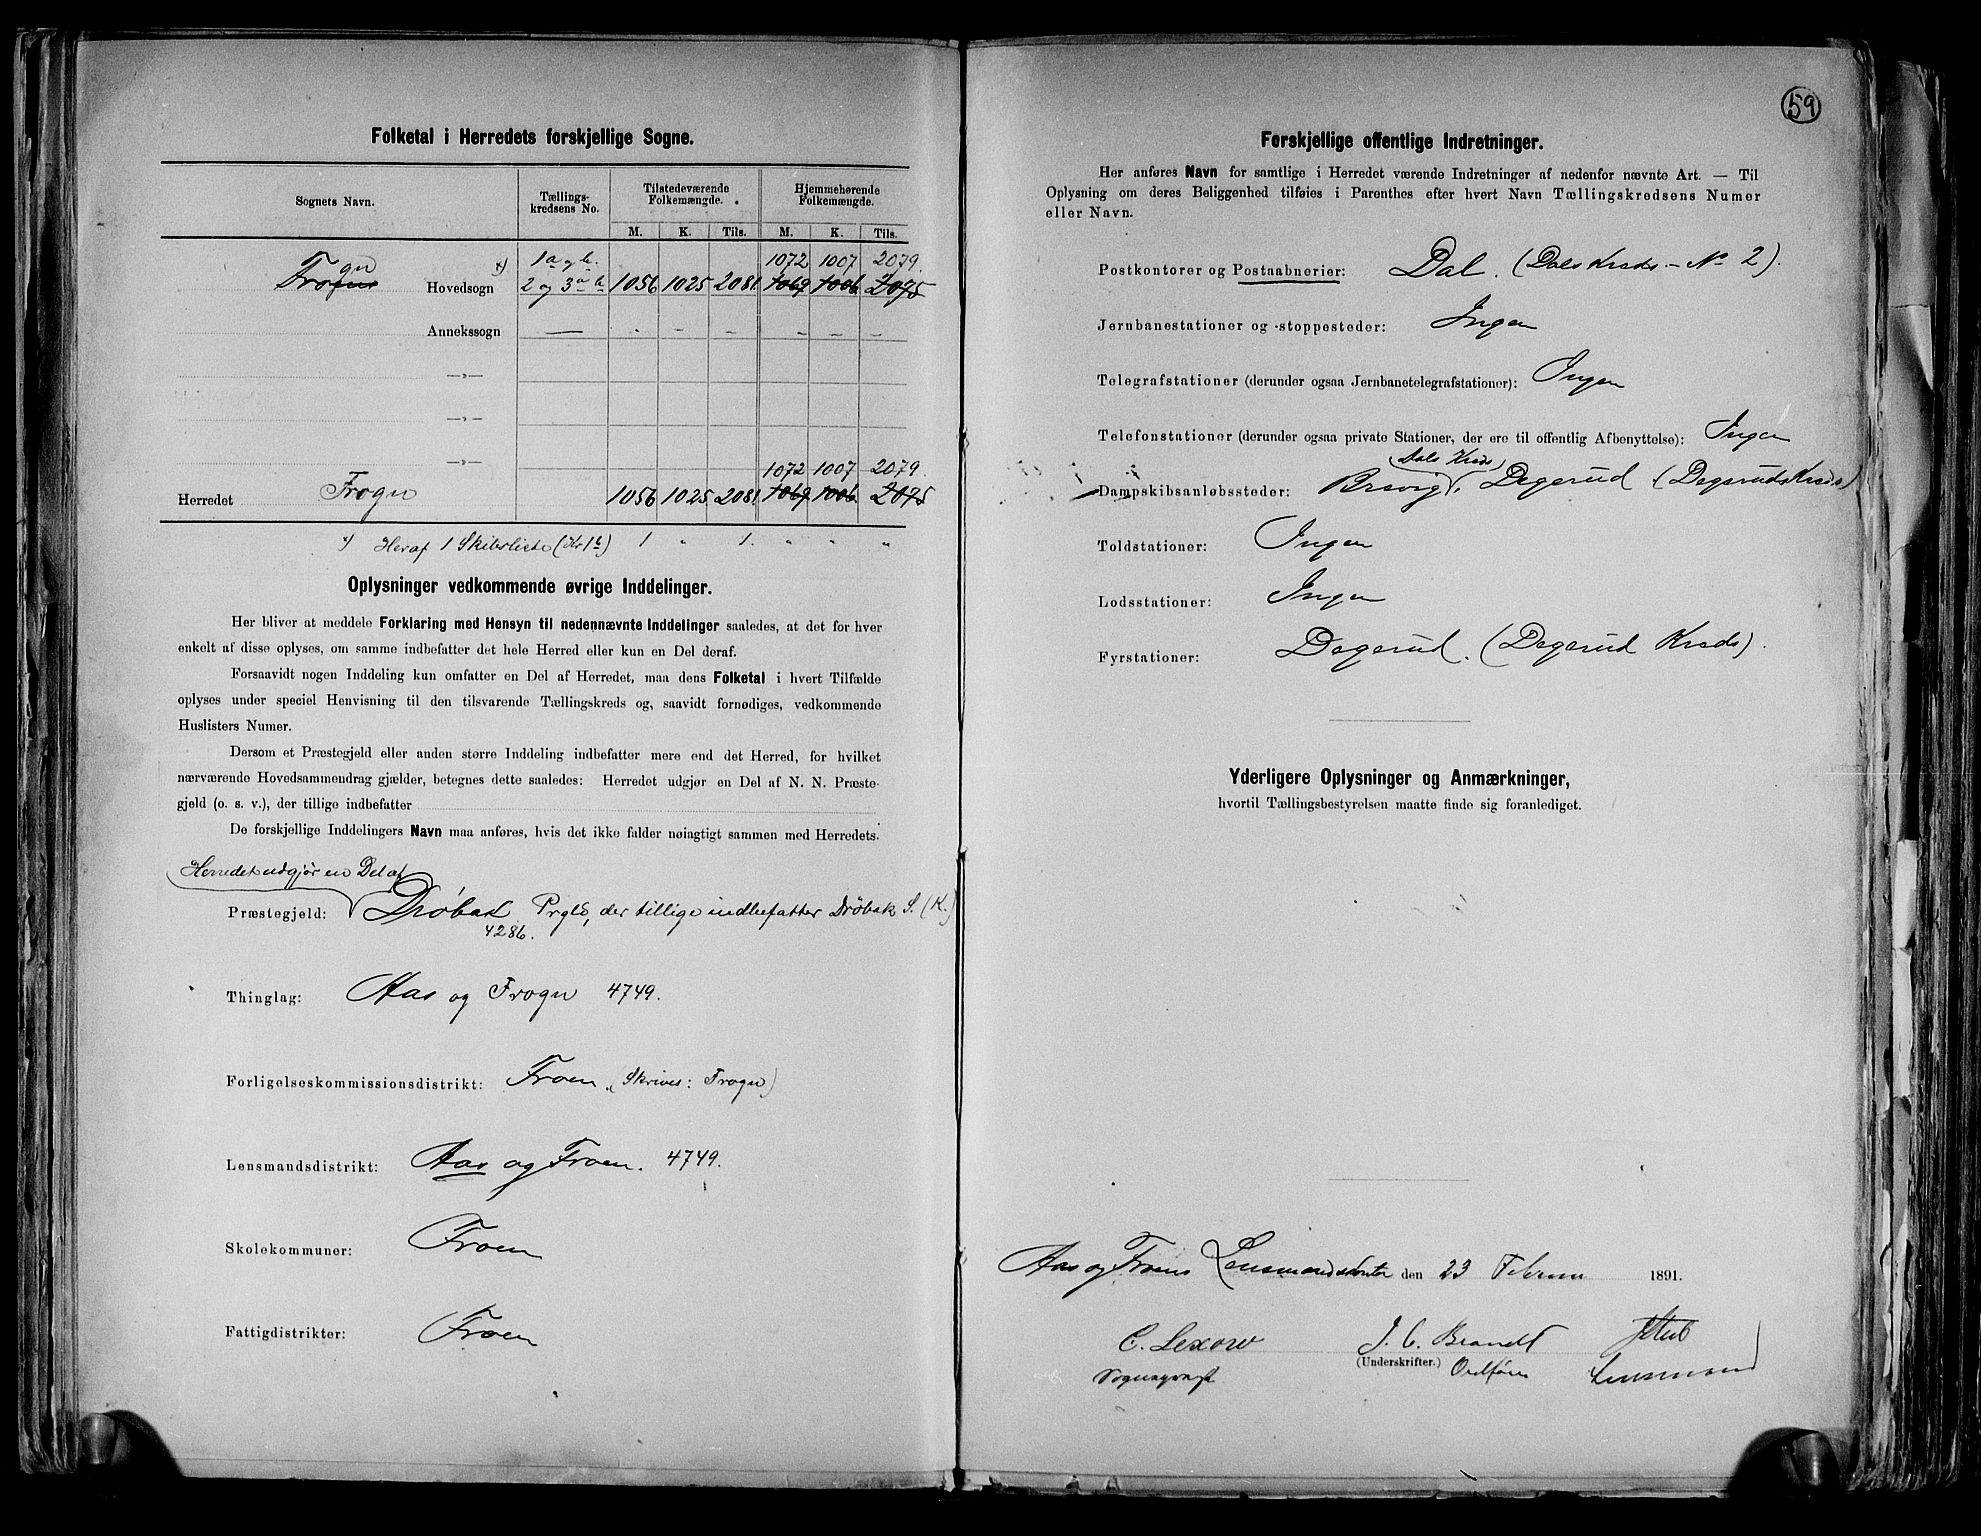 Folketal i Herredets forskjellige Sogne.
Sognets Navn. Tællings-kredsens No. Tilstedeværende Folkemængde. Hjemmehørende Folkemængde.
M. K. Tils. M. K. Tils.
gn x) 1a og b. 1072 1007 2079.
Froens Hovedsogn 2 og 3a b 1056 1025 2081. 1069 1006. 2075
Annekssogn — - - - - - -
—»—
—»—
—»— 1072 1007 2079.
Herredet Frogn 1056 1025 2081. 1069 1006. 2075
x) Heraf 1 Skibsliste (Kr 1b) 1 " 1. " " "
Oplysninger vedkommende øvrige Inddelinger.
Her bliver at meddele Forklaring med Hensyn til nedennævnte Inddelinger saaledes, at det for hver
enkelt af disse oplyses, om samme indbefatter det hele Herred eller kun en Del deraf.
Forsaavidt nogen Inddeling kun omfatter en Del af Herredet, maa dens Folketal i hvert Tilfælde
oplyses under speciel Henvisning til den tilsvarende Tællingskreds og, saavidt fornødiges, vedkommende
Huslisters Numer.
Dersom et Præstegjeld eller anden større Inddeling indbefatter mere end det Herred, for hvilket
nærværende Hovedsammendrag gjælder, betegnes dette saaledes: Herredet udgjør en Del af N. N. Præste-
gjeld (o. s. v.), der tillige indbefatter
De forskjellige Inddelingers Navn maa anføres, hvis det ikke falder nøiagtigt sammen med Herredets.
Herredet udgjør en Del af
Præstegjeld: Drøbak Prgld, der tillige indbefatter Drøbak S. (K.)
4286.
Thinglag: Aas og Frogn 4749.
Forligelseskommissionsdistrikt: Froen (Skrives: Frogn)
Lensmandsdistrikt: Aas og Froen. 4749.
Skolekommuner: Froen
Fattigdistrikter: Froen
59
Forskjellige offentlige Indretninger.
Her anføres Navn for samtlige i Herredet værende Indretninger af nedenfor nævnte Art. — Til
Oplysning om deres Beliggenhed tilføies i Parenthes efter hvert Navn Tællingskredsens Numer
eller Navn.
Postkontorer og Postaabnerier: Dal. (Dals Kreds - No 2).
Jernbanestationer og -stoppesteder: Ingen
Telegrafstationer (derunder ogsaa Jernbanetelegrafstationer): Ingen
Telefonstationer (derunder ogsaa private Stationer, der ere til offentlig Afbenyttelse): Ingen
(Dals Kreds)
Dampskibsanløbssteder: Brevig, Degerud (Degeruds Kreds)
Toldstationer: Ingen
Lodsstationer: Ingen
Fyrstationer: Degerud. (Degerud Kreds).
Yderligere Oplysninger og Anmærkninger,
hvortil Tællingsbestyrelsen maatte finde sig foranlediget.
Aas og Froens Lensmandskontor den 23 Februar 1891.
C. Lexow J. C. Brandt
(Underskrifter.)
Sognepræst Ordfører Lensmand